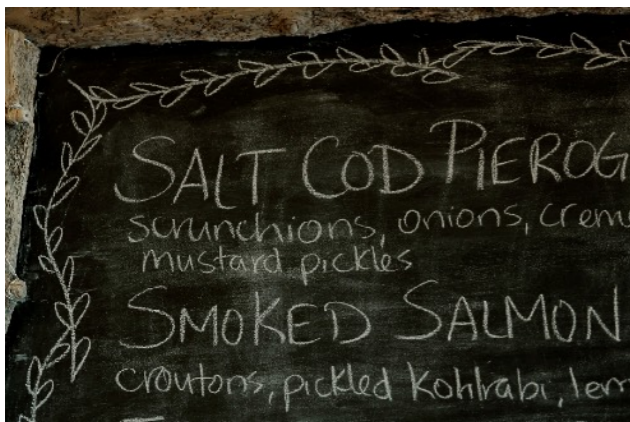 SALT COD PIEROG
scrunchions, onions, creme
mustard pickles
SMOKED SALMON
croutons, pickled Kohlrabi, lem